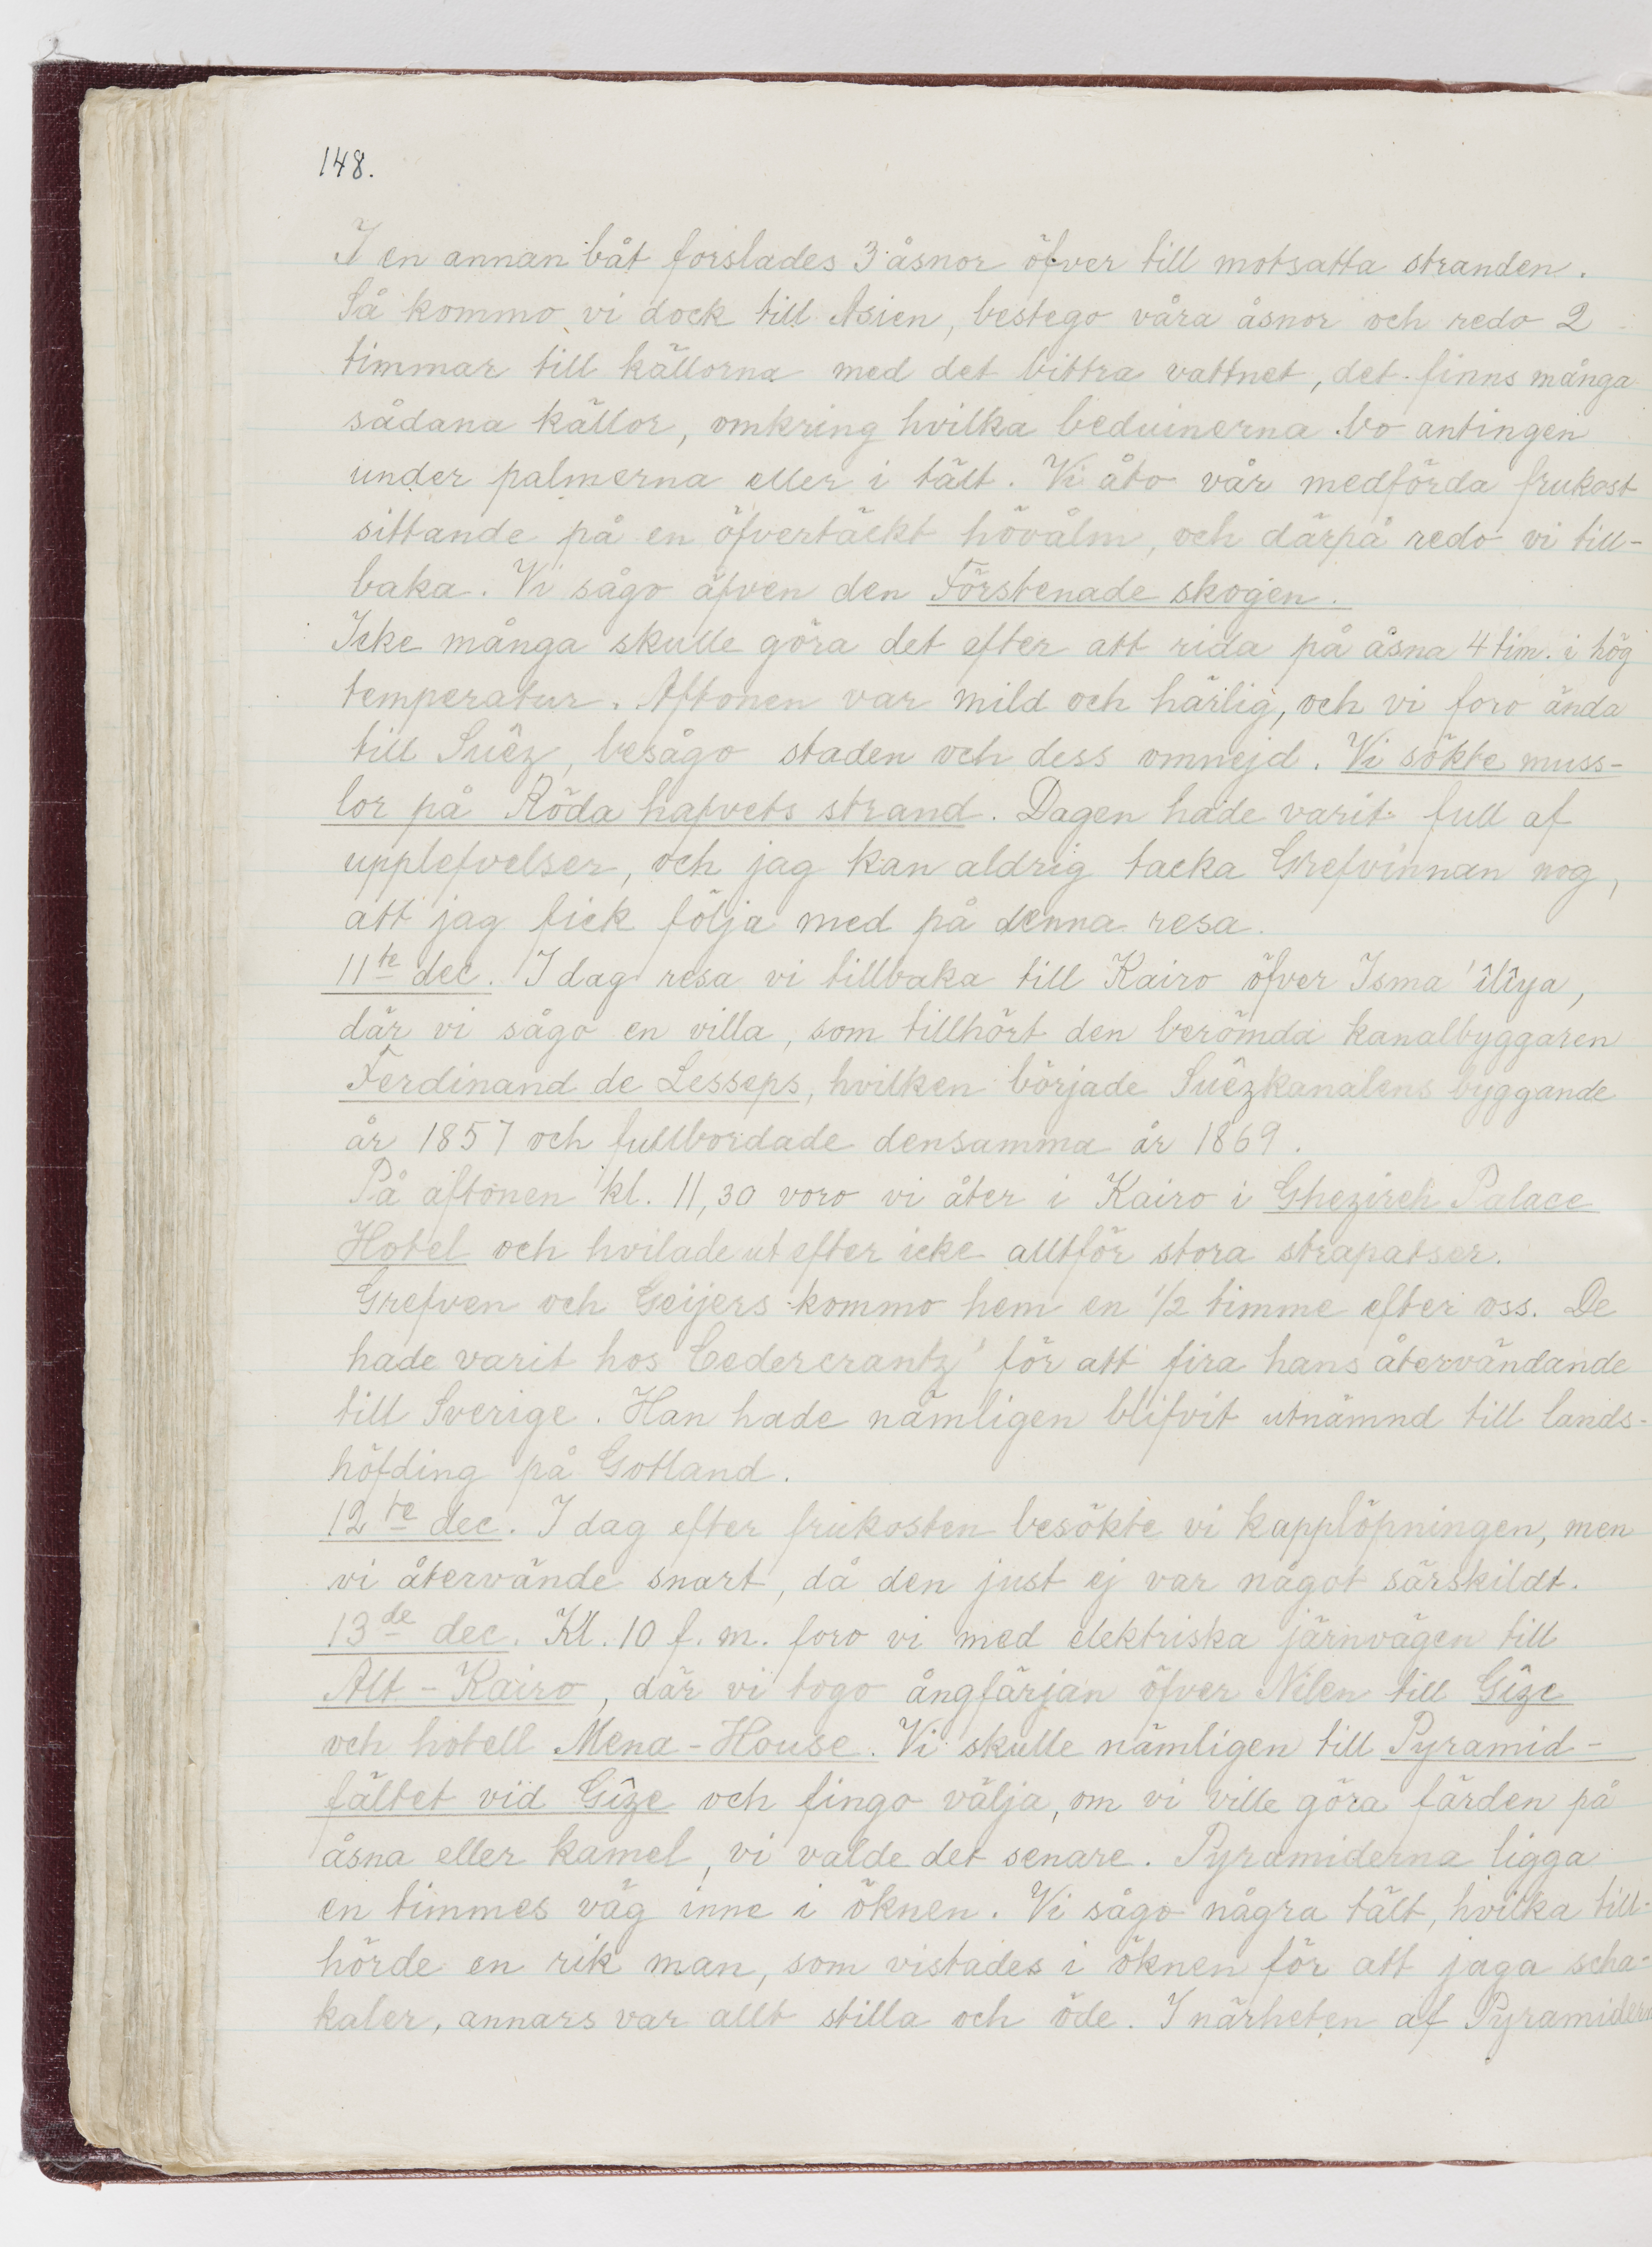 148.
I en annan båt forslades 3 åsnor öfver till motsatta stranden.
Så kommo vi dock till Asien, bestego våra åsnor och redo 2
timmar till källorna med det bittra vattnet, det finns många
sådana källor, omkring hvilka beduinerna bo antingen
under palmerna eller i tält. Vi åto vår medförda frukost
sittande på en öfvertäckt hövålm, och därpå redo vi till-
baka. Vi sågo äfven den Förstenade skogen.
Icke många skulle göra det efter att rida på åsna 4 tim. i hög
temperatur. Aftonen var mild och härlig, och vi foro ända
till Suêz, besågo staden och dess omnejd. Vi sökte muss-
lor på Röda hafvets strand. Dagen hade varit full af
upplefvelser, och jag kan aldrig tacka Grefvinnan nog,
att jag fick följa med på denna resa.
11te dec. I dag resa vi tillbaka till Kairo öfver Isma'îlîya,
där vi sågo en villa, som tillhört den berömda kanalbyggaren
Ferdinand de Lesseps, hvilken började Suêzkanalens byggande
år 1857 och fullbordade densamma år 1869.
På aftonen kl. 11,30 voro vi åter i Kairo i Ghezireh Palace
Hotel och hvilade ut efter icke alltför stora strapatser.
Grefven och Geijers kommo hem en 1/2 timme efter oss. De
hade varit hos Cedercrantz' för att fira hans återvändande
till Sverige. Han hade nämligen blifvit utnämnd till lands-
höfding på Gotland.
12te dec. I dag efter frukosten besökte vi kapplöpningen, men
vi återvände snart, då den just ej var något särskildt.
13de dec. Kl. 10 f. m. foro vi med elektriska järnvägen till
Alt-Kairo, där vi togo ångfärjan öfver Nilen till Gîze
och hotell Mena-House. Vi skulle nämligen till Pyramid-
fältet vid Gîze och fingo välja, om vi ville göra färden på
åsna eller kamel, vi valde det senare. Pyramiderna ligga
en timmes väg inne i öknen. Vi sågo några tält, hvilka till-
hörde en rik man, som vistades i öknen för att jaga scha-
kaler, annars var allt stilla och öde. I närheten af Pyramidern